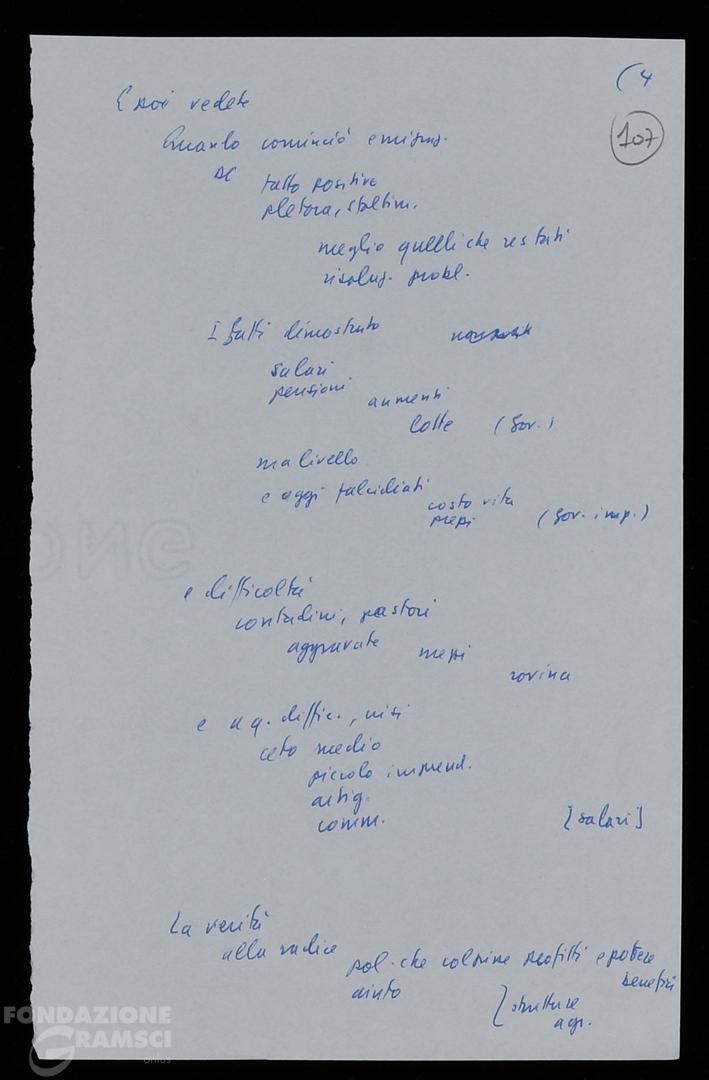 (4
107
E poi vedete
Quando cominciò emigraz.
DC fatto positivo
pletora, sfoltim.
meglio quelli che restati
risoluz. probl.
I fatti dimostrato
salari
pensioni
aumenti
lotte (Gov.)
ma livello
e oggi falcidiati
costo vita
prezzi (Gov. imp.)
e difficoltà
contadini, pastori
aggravate mezzi
rovina
e a q. diffic., crisi
ceto medio
piccolo imprend.
artig.
comm. [salari]
La verità
alla radice
pol. che colpire profitti e potere
benefici
aiuto [strutture
agr.
FONDAZIONE
GRAMSCI
onlus